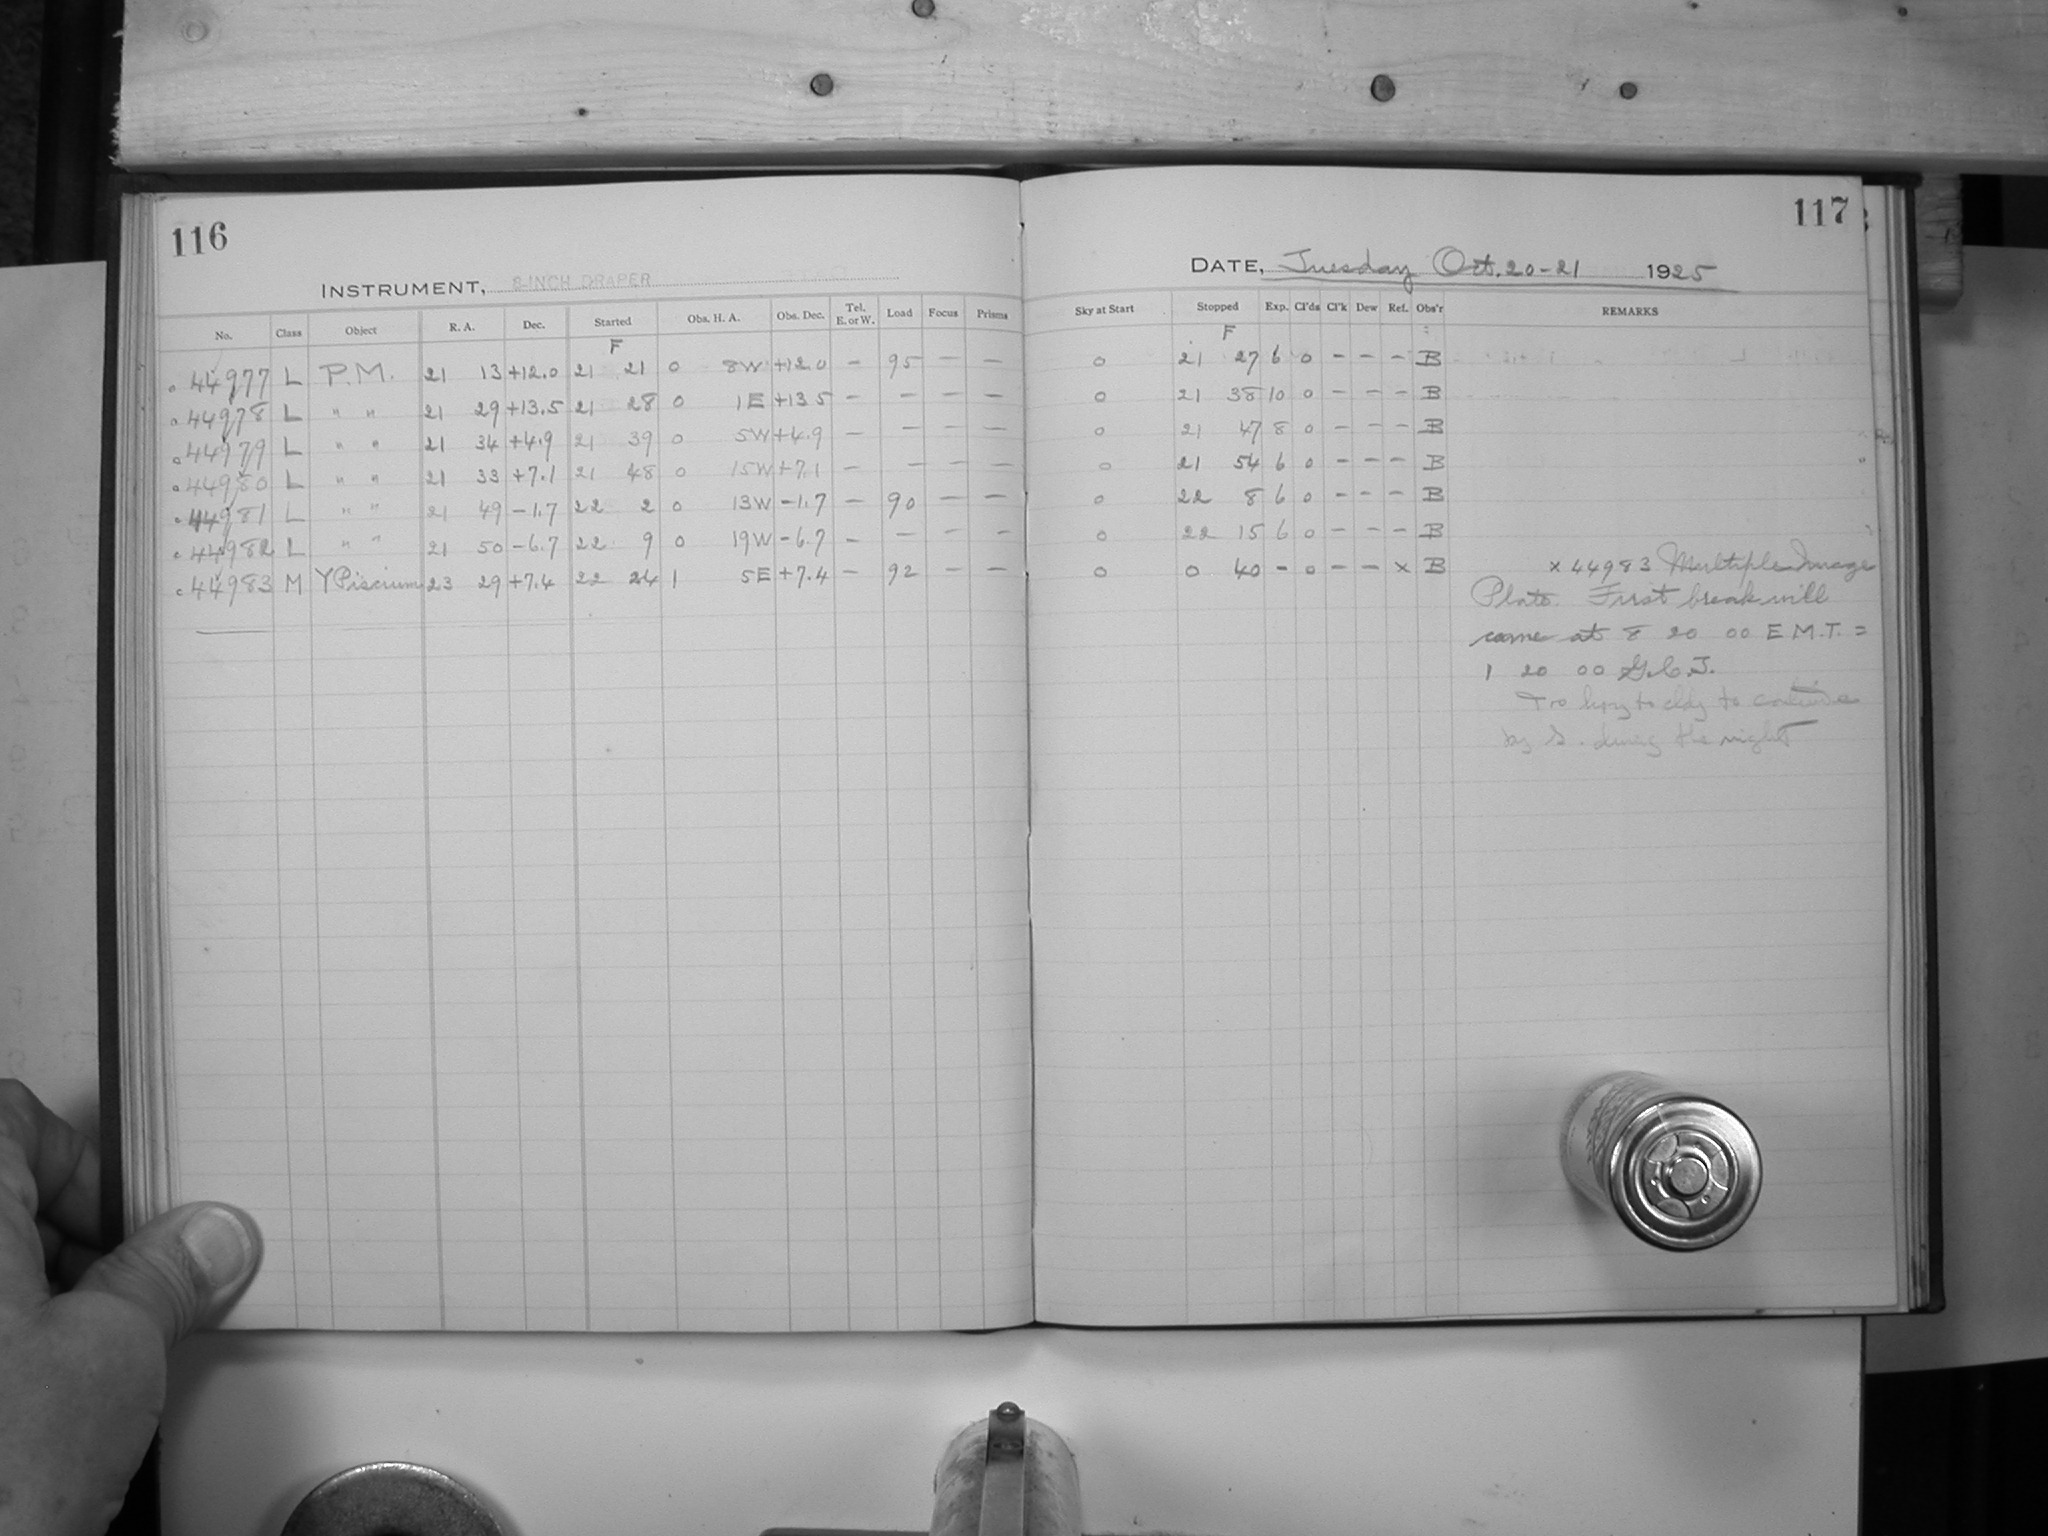 116
INSTRUMENT, 8-INCH DRAPER
No. Class Object R. A. Dec. Started Obs. H. A. Obs. Dec. Tel. E. or W. Load Focus Prisms
F
44977 L P.M. 21 13 +12.0 21 21 0 8W +12.0 — 95 — —
44978 L " " 21 29 +13.5 21 28 0 1E +13 5 — — — —
44979 L " " 21 34 +4.9 21 39 0 5W +4.9 — — — —
44980 L " " 21 33 +7.1 21 48 0 15W +7.1 — — — —
44981 L " " 21 49 -1.7 22 2 0 13W -1.7 — 90 — —
44982 L " " 21 50 -6.7 22 9 0 19W -6.7 — — — —
44983 M Y Piscium 23 29 +7.4 22 24 1 5E +7.4 — 92 — —
117
DATE, Tuesday Oct. 20-21 1925
Sky at Start Stopped Exp. Cl'ds Cl'k Dew Ref. Obs'r REMARKS
F
0 21 27 6 0 – – – B
0 21 38 10 0 – – – B
0 21 47 8 0 – – – B
0 21 54 6 0 – – – B
0 22 8 6 0 – – – B
0 22 15 6 0 – – – B
0 0 40 – 0 – – x B x 44983 Multiple Image
Plate. First break will
come at 8 20 00 E.M.T. =
1 20 00 G.C.T.
Too hazy to cldy to continue
by S. during the night